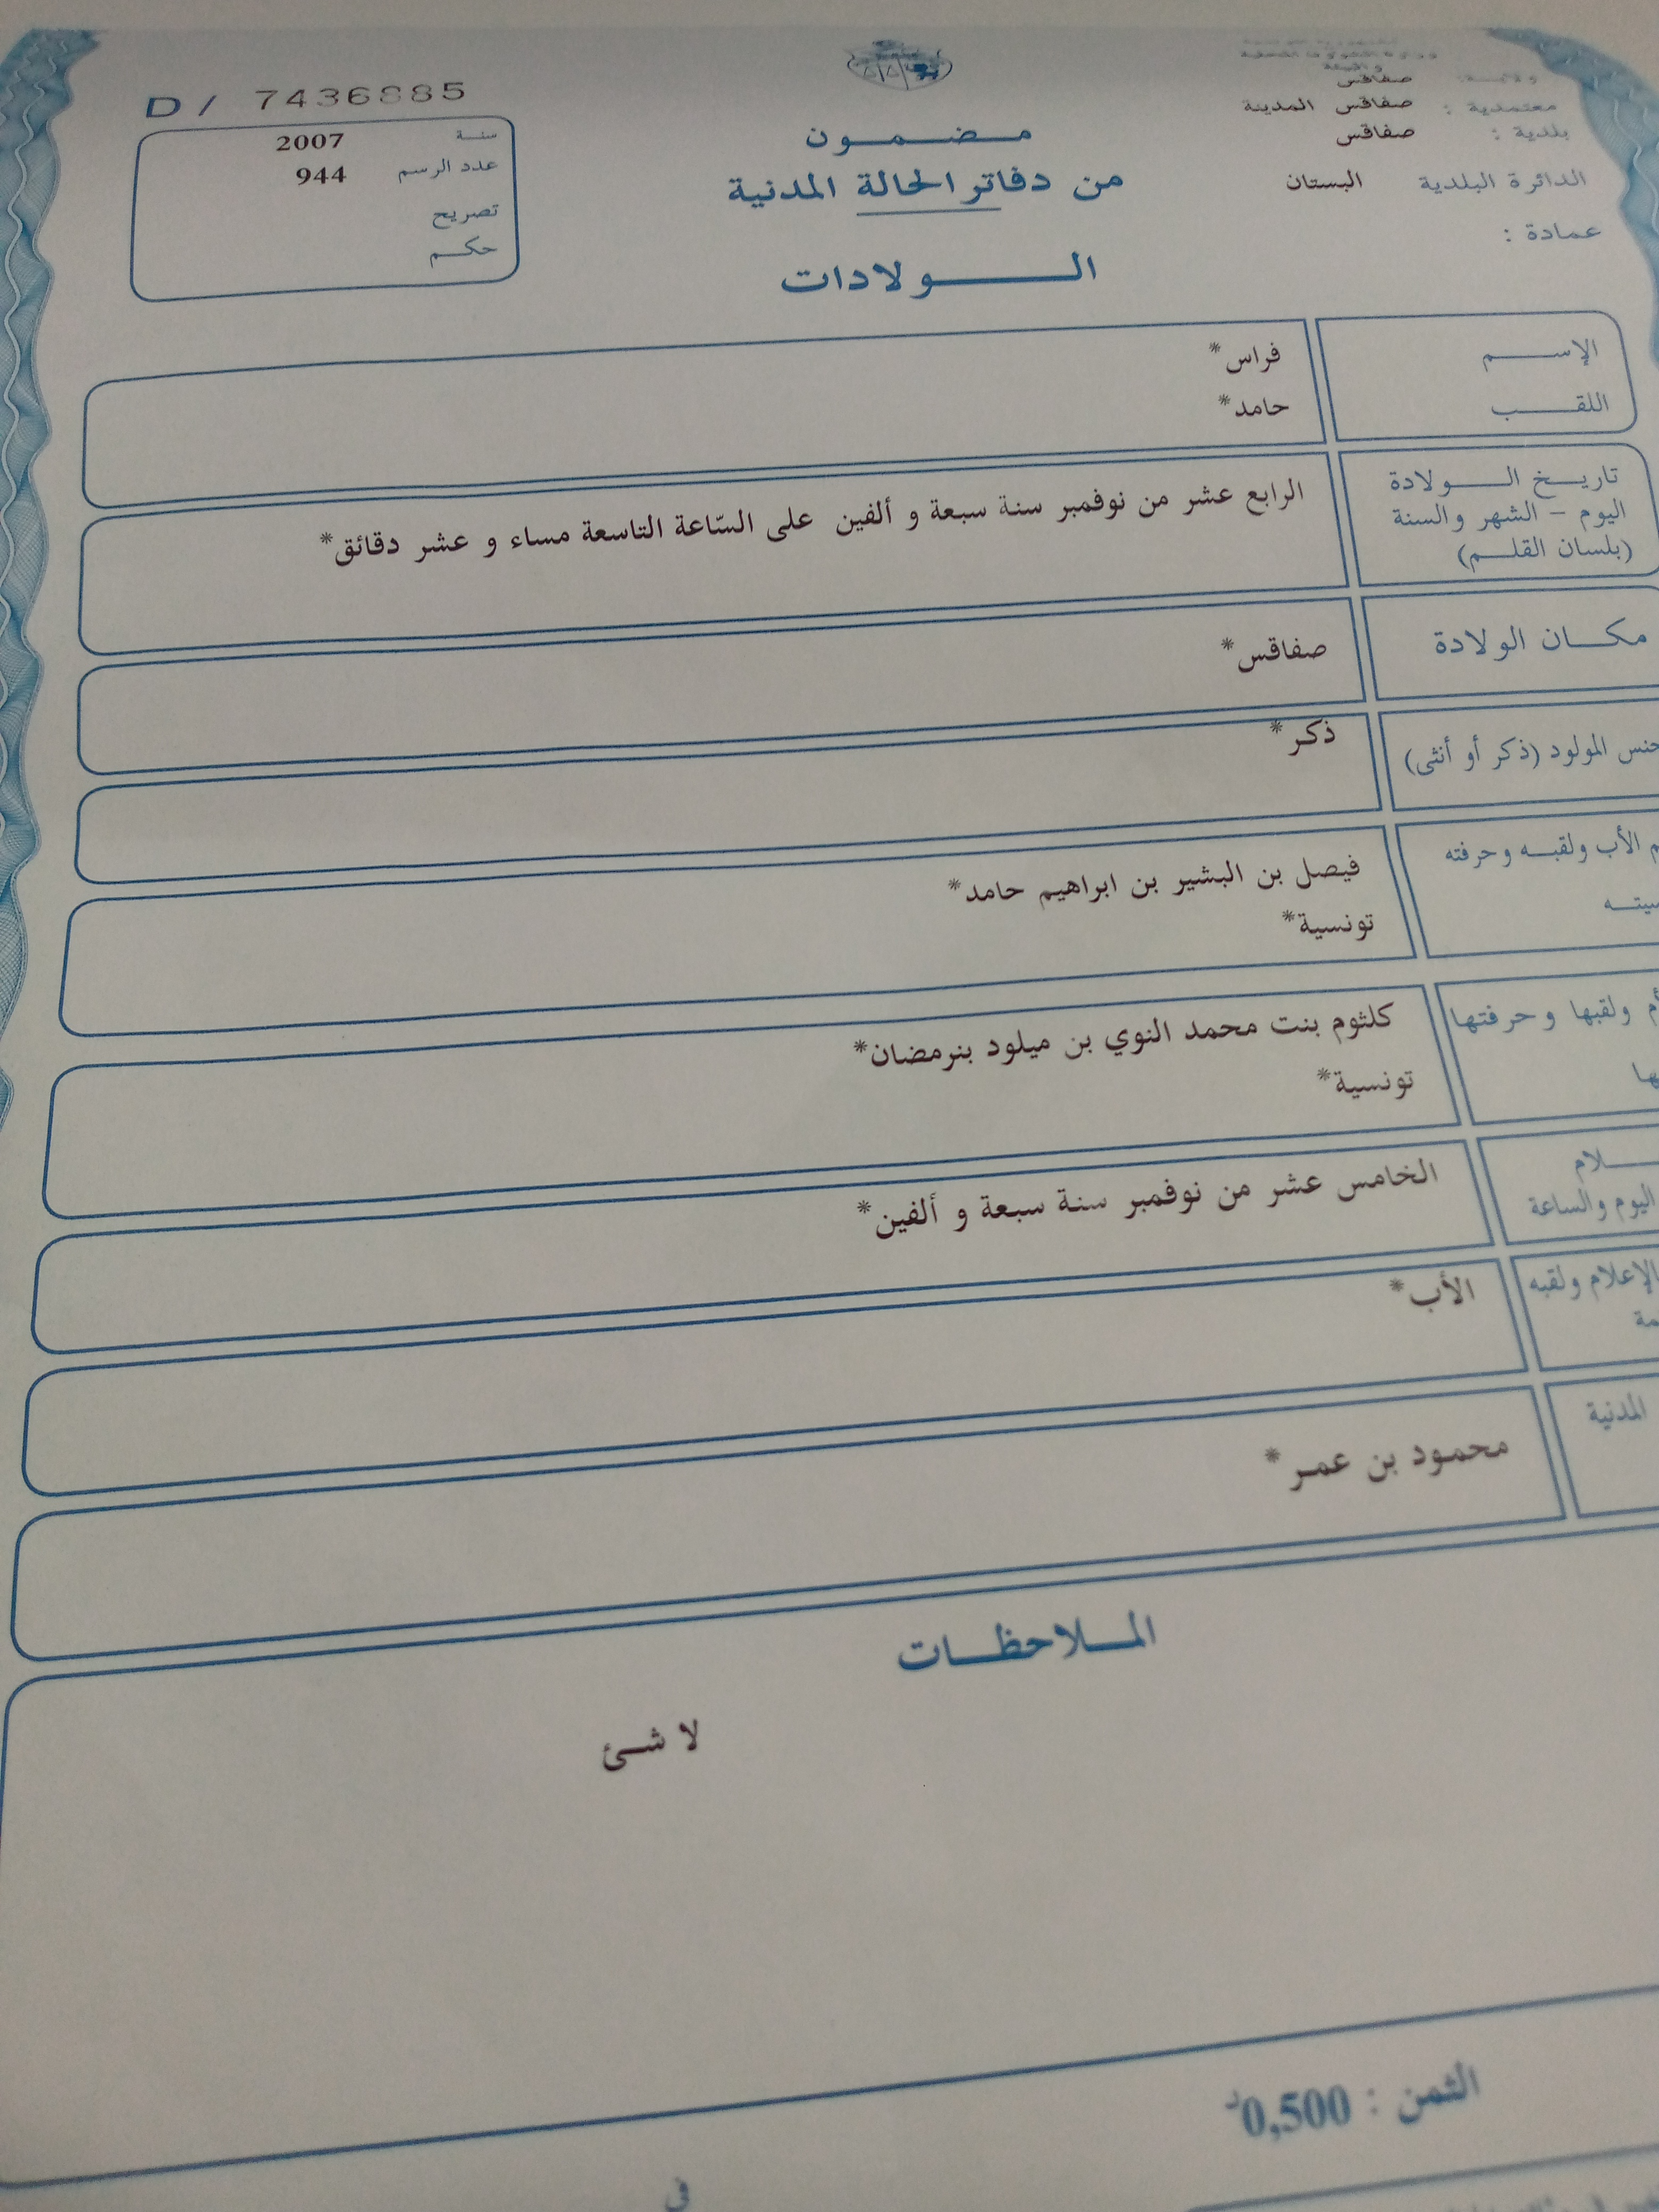 ولاية: صفاقس
معتمدية : صفاقس المدينة
بلدية : صفاقس
الدائرة البلدية البستان
عمادة :
مـضـمـون
من دفاتر الحالة المدنية
الـولادات
D / 7436885
سنة 2007
عدد الرسم 944
تصريح
حكم
الإسم فراس*
اللقب حامد*
تاريخ الولادة
اليوم – الشهر والسنة
(بلسان القلم)
الرابع عشر من نوفمبر سنة سبعة و ألفين على السّاعة التاسعة مساء و عشر دقائق*
مكان الولادة صفاقس*
جنس المولود (ذكر أو أنثى) ذكر*
الأب ولقبه وحرفته فيصل بن البشير بن ابراهيم حامد*
تونسية*
ولقبها وحرفتها كلثوم بنت محمد النوي بن ميلود بنرمضان*
تونسية*
اليوم والساعة الخامس عشر من نوفمبر سنة سبعة و ألفين*
الإعلام ولقبه الأب*
المدنية محمود بن عمر*
الملاحظات
لا شئ
الثمن : 0,500د
في